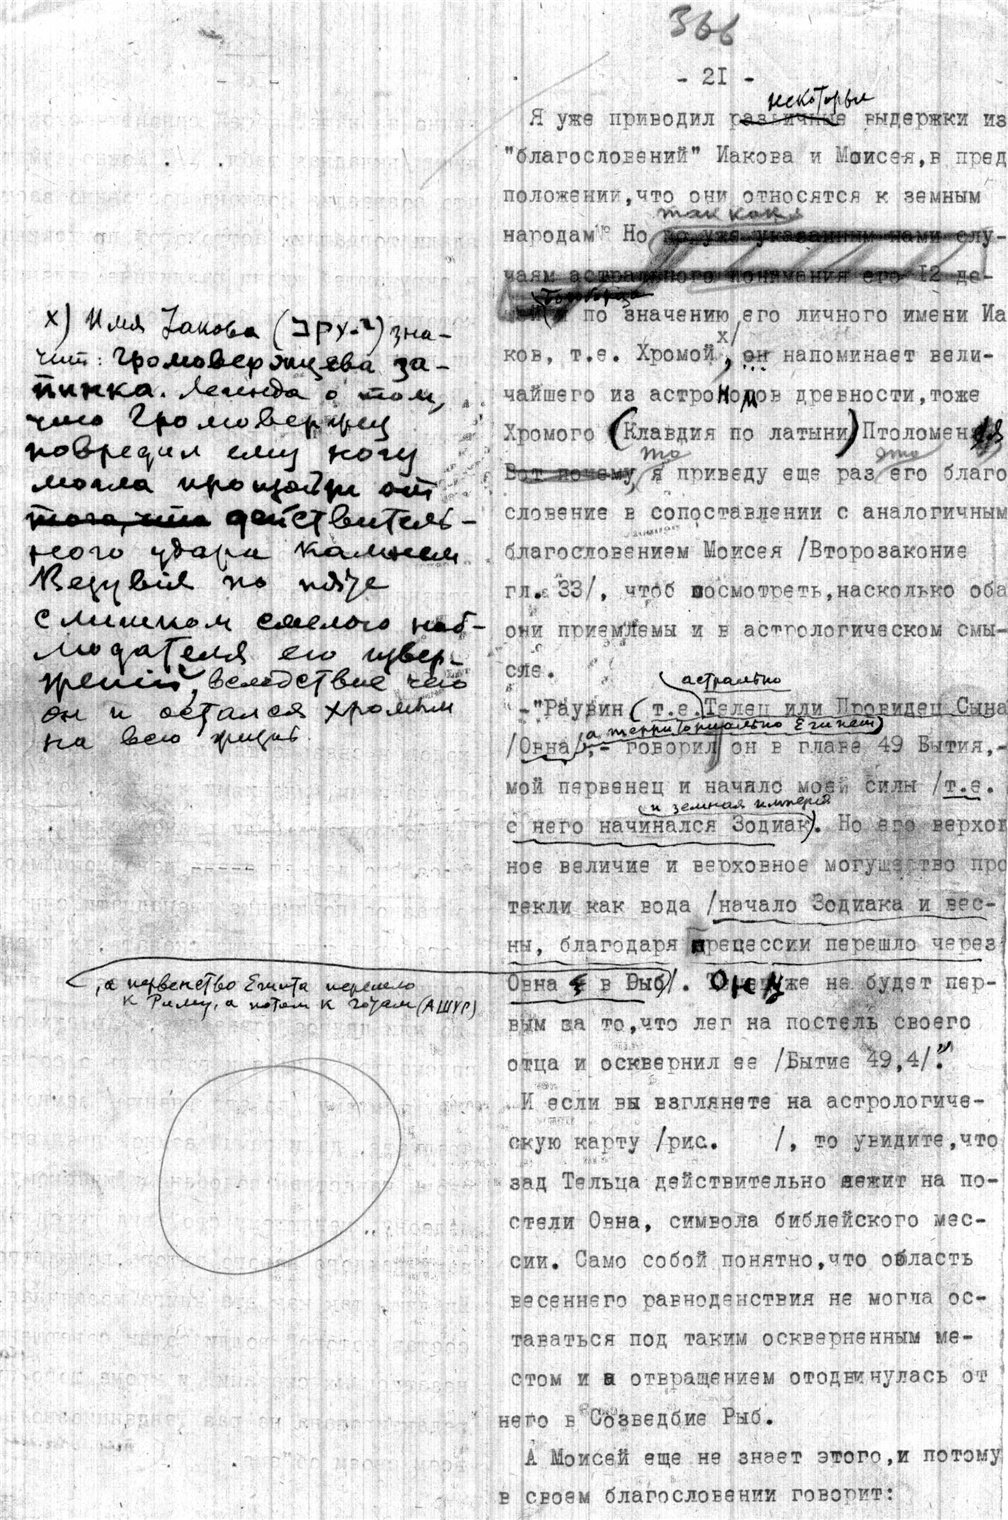 366
- 2I -
некоторые
Я уже приводил различные выдержки из
"благословений" Иакова и Моисея,в пред
положении,что они относятся к земным
так как
народам Но по уже указанным нами слу-
чаям астрального понимания его I2 де-
по значению его личного имени Иа
х/
ков, т.е. Хромой, он напоминает вели-
чайшего из астрономов древности,тоже
Хромого (Клавдия по латыни) Птоломея
то это
Вот почему, я приведу еще раз его благо
словение в сопоставлении с аналогичным
благословением Моисея /Второзаконие
гл. 33/, чтоб посмотреть,насколько оба
они приемлемы и в астрологическом смы-
сле.
астрально
-"Раувин (т.е. Телец или Провидец Сына
а территориально Египет)
/Овна/,- говорил он в главе 49 Бытия,-
мой первенец и начало моей силы /т.е.
и земная империя
с него начинался Зодиак). Но его верхов
ное величие и верховное могущество про
текли как вода /начало Зодиака и вес-
ны, благодаря прецессии перешло через
Овна в Рыб/. Он уже не будет пер-
вым за то,что лег на постель своего
отца и осквернил ее /Бытие 49,4/."
И если вы взглянете на астрологиче-
скую карту /рис. /, то увидите,что
зад Тельца действительно лежит на по-
стели Овна, символа библейского мес-
сии. Само собой понятно,что область
весеннего равноденствия не могла ос-
таваться под таким оскверненным ме-
стом и в отвращением отодвинулась от
него в Созведбие Рыб.
А Моисей еще не знает этого,и потому
в своем благословении говорит:
х) Имя Iакова (יעקב) зна-
чит: Громовержцева за-
пинка. Легенда о том,
что Громовержец
повредил ему ногу
могла произойти от
того, что действитель-
ного удара камнем
Везувия по пяте
слишком смелого наб-
людателя его извер-
жений, вследствие чего
он и остался хромым
на всю жизнь.
, а первенство Египта перешло
к Риму, а потом к готам (АШУР)